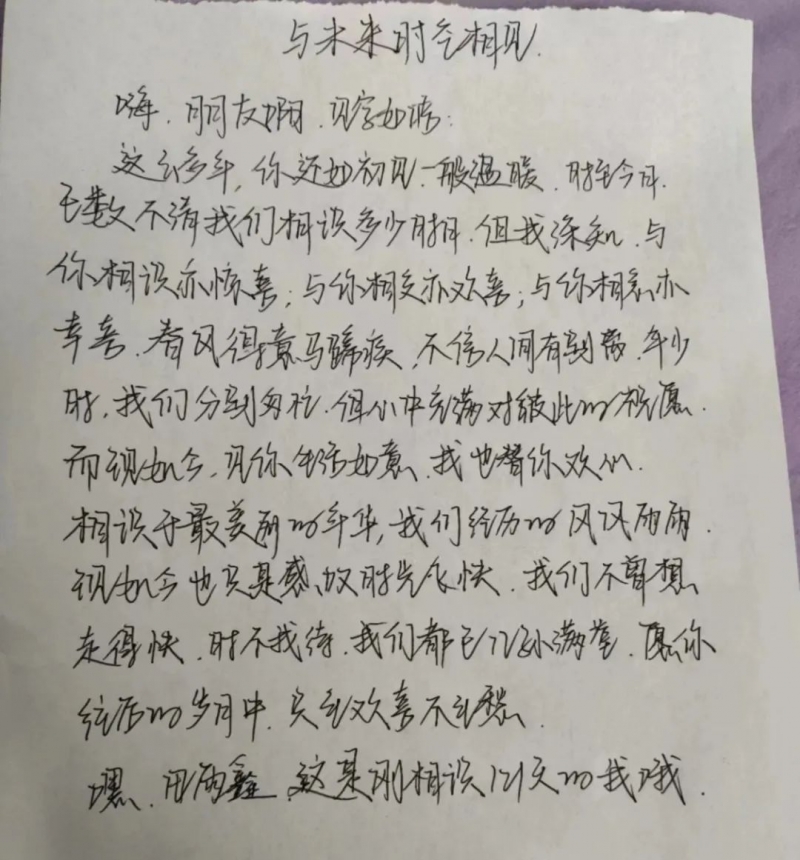 与未来时空相见.
嗨.朋友啊.见字如晤:
这么多年,你还如初见一般温暖.时至今日.
已数不清我们相识多少时日.但我深知.与
你相识亦惊喜;与你相交亦欢喜;与你相知亦
幸喜.春风得意马蹄疾,不信人间有别离.年少
时,我们分别匆忙.但心中充满对彼此的祝愿.
而现如今,见你生活如意.我也替你欢心.
相识于最美丽的年华,我们经历的风风雨雨.
现如今也只是感叹时光飞快.我们不曾想
走得快.时不我待.我们都已儿孙满堂.愿你
往后的岁月中.只宝欢喜不宝愁.
嘿.田雨鑫.这是刚相识121天的我哦.